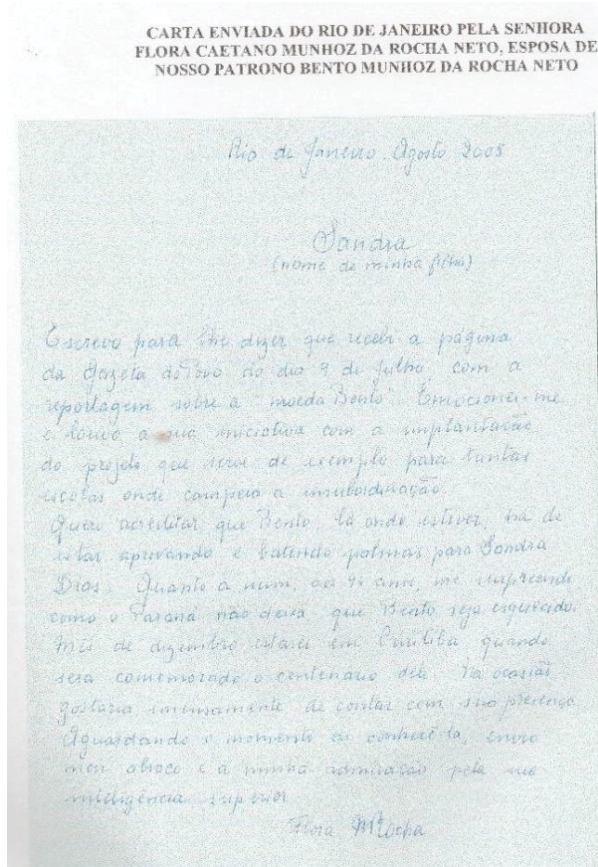 CARTA ENVIADA DO RIO DE JANEIRO PELA SENHORA
FLORA CAETANO MUNHOZ DA ROCHA NETO, ESPOSA DE
NOSSO PATRONO BENTO MUNHOZ DA ROCHA NETO
Rio de Janeiro. Agosto 2005
Sandra
(nome de minha filha)
Escrevo para lhe dizer que recebi a página
da Gazeta do Povo do dia 9 de julho com a
reportagem sobre a "moeda Bento". Emocionei-me
e louvo a sua iniciativa com a implantação
do projeto que serve de exemplo para tantas
escolas onde campeia a insubordinação.
Quero acreditar que Bento, lá onde estiver, há de
estar aprovando e batendo palmas para Sandra
Dias. Quanto a mim, aos 94 anos, me surpreendo
como o Paraná não deixa que Bento seja esquecido.
Mês de dezembro estarei em Curitiba quando
será comemorado o centenário dele. Na ocasião
gostaria imensamente de contar com sua presença.
Aguardando o momento de conhecê-la, envio
meu abraço e a minha admiração pela sua
inteligência superior
Flora M Rocha